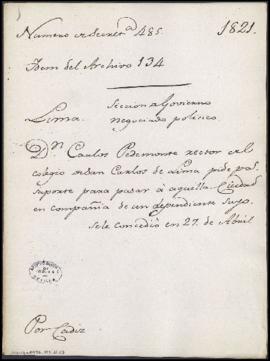 Numero de Secret.ª 485. 1821.
Idem del Archivo 134
Lima. Seccion de Govierno
Negociado politico
D.n Carlos Pedemonte rector del
colegio de San Carlos de Lima pide pa
saporte para pasar à aquella Ciudad
en compañia de un dependiente suyo.
Se le concedió en 27. de Abril
Por Cadiz